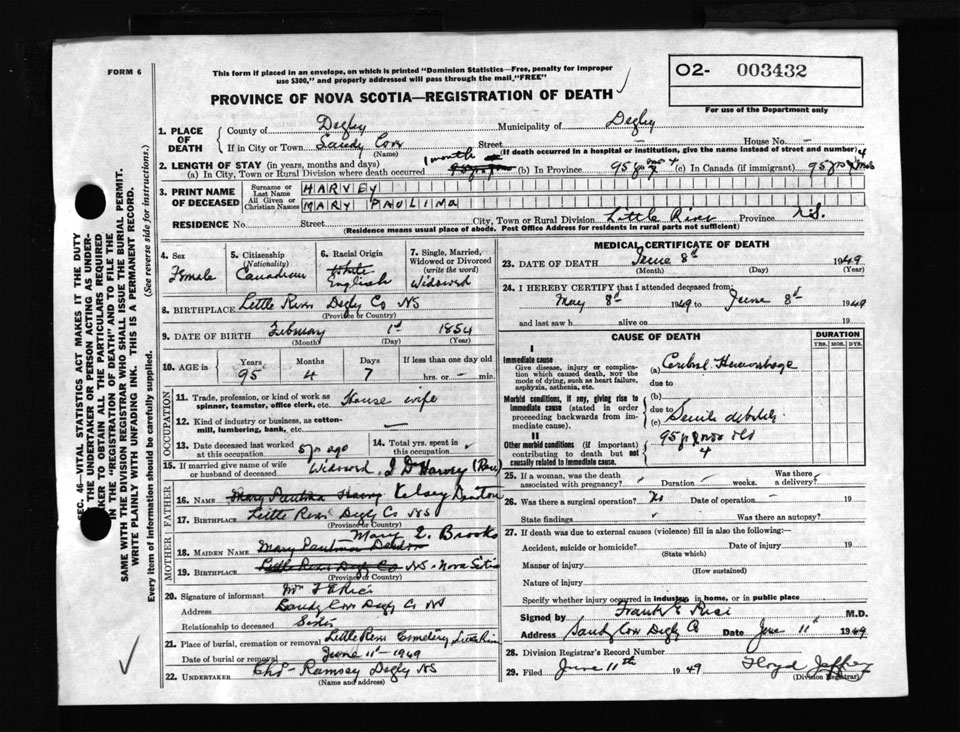 FORM 6
This form if placed in an envelope, on which is printed "Dominion Statistics—Free, penalty for improper
use $300," and properly addressed will pass through the mail, "FREE"
PROVINCE OF NOVA SCOTIA—REGISTRATION OF DEATH
O2- 003432
For use of the Department only
SEC. 46—VITAL STATISTICS ACT MAKES IT THE DUTY
OF THE UNDERTAKER OR PERSON ACTING AS UNDER-
TAKER TO OBTAIN ALL THE PARTICULARS REQUIRED
IN THE "REGISTRATION OF DEATH" AND TO FILE THE
SAME WITH THE DIVISION REGISTRAR WHO SHALL ISSUE THE BURIAL PERMIT.
WRITE PLAINLY WITH UNFADING INK. THIS IS A PERMANENT RECORD.
Every item of information should be carefully supplied. (See reverse side for instructions.)
1. PLACE OF DEATH
County of Digby Municipality of Digby
If in City or Town Sandy Cove Street House No. -
(Name) (If death occurred in a hospital or institution, give the name instead of street and number)
2. LENGTH OF STAY (in years, months and days)
(a) In City, Town or Rural Division where death occurred 1 month (b) In Province 95 yrs mos 4 (c) In Canada (if immigrant) 95 yrs 4 mos
3. PRINT NAME OF DECEASED
Surname or Last Name HARVEY
All Given or Christian Names MARY PAULINA
RESIDENCE No. Street City, Town or Rural Division Little River Province N.S.
(Residence means usual place of abode. Post Office Address for residents in rural parts not sufficient)
4. Sex Female
5. Citizenship (Nationality) Canadian
6. Racial Origin White English
7. Single, Married, Widowed or Divorced (write the word) Widowed
8. BIRTHPLACE Little River Digby Co NS
(Province or Country)
9. DATE OF BIRTH February 1st 1854
(Month) (Day) (Year)
10. AGE in Years 95 Months 4 Days 7 If less than one day old hrs. or - min.
OCCUPATION
11. Trade, profession, or kind of work as spinner, teamster, office clerk, etc. House wife
12. Kind of industry or business, as cotton-mill, lumbering, bank, etc. -
13. Date deceased last worked at this occupation 5 yr ago
14. Total yrs. spent in this occupation
15. If married give name of wife or husband of deceased Widowed J D Harvey
FATHER
16. NAME Mary Paulina Kelsey Denton
17. BIRTHPLACE Little River Digby Co NS
(Province or Country)
MOTHER
18. MAIDEN NAME Mary E. Brooks
19. BIRTHPLACE Little River Digby Co NS - Nova Scotia
(Province or Country)
20. Signature of informant
Address Sandy Cove Digby Co NS
Relationship to deceased Sister
21. Place of burial, cremation or removal Little River Cemetery Little River
Date of burial or removal June 11- 1949
22. UNDERTAKER Chas Ramsey Digby NS
(Name and address)
MEDICAL CERTIFICATE OF DEATH
23. DATE OF DEATH June 8th 1949
(Month) (Day) (Year)
24. I HEREBY CERTIFY that I attended deceased from:
May 8th 1949 to June 8th 1949
and last saw h alive on 19
CAUSE OF DEATH
DURATION
YRS. MOS. DYS.
I
Immediate cause
Give disease, injury or complication which caused death, NOT the mode of dying, such as heart failure, asphyxia, asthenia, etc.
(a) Cerebral Hemorrhage
due to
Morbid conditions, if any, giving rise to immediate cause (stated in order proceeding backwards from immediate cause).
(b)
due to
(c) Senile debility
II
Other morbid conditions (if important) contributing to death but not causally related to immediate cause.
95 yr 4 mos old
25. If a woman, was the death associated with pregnancy? Duration weeks. Was there a delivery?
26. Was there a surgical operation? No Date of operation - 19
State findings Was there an autopsy?
27. If death was due to external causes (violence) fill in also the following:—
Accident, suicide or homicide? Date of injury 19
(State which)
Manner of injury
(How sustained)
Nature of injury
Specify whether injury occurred in industry, in home, or in public place
Signed by Frank E Rice M.D.
Address Sandy Cove Digby Co Date June 11th 1949
28. Division Registrar's Record Number
29. Filed June 11th 1949 Floyd Jeffrey
(Division Registrar)